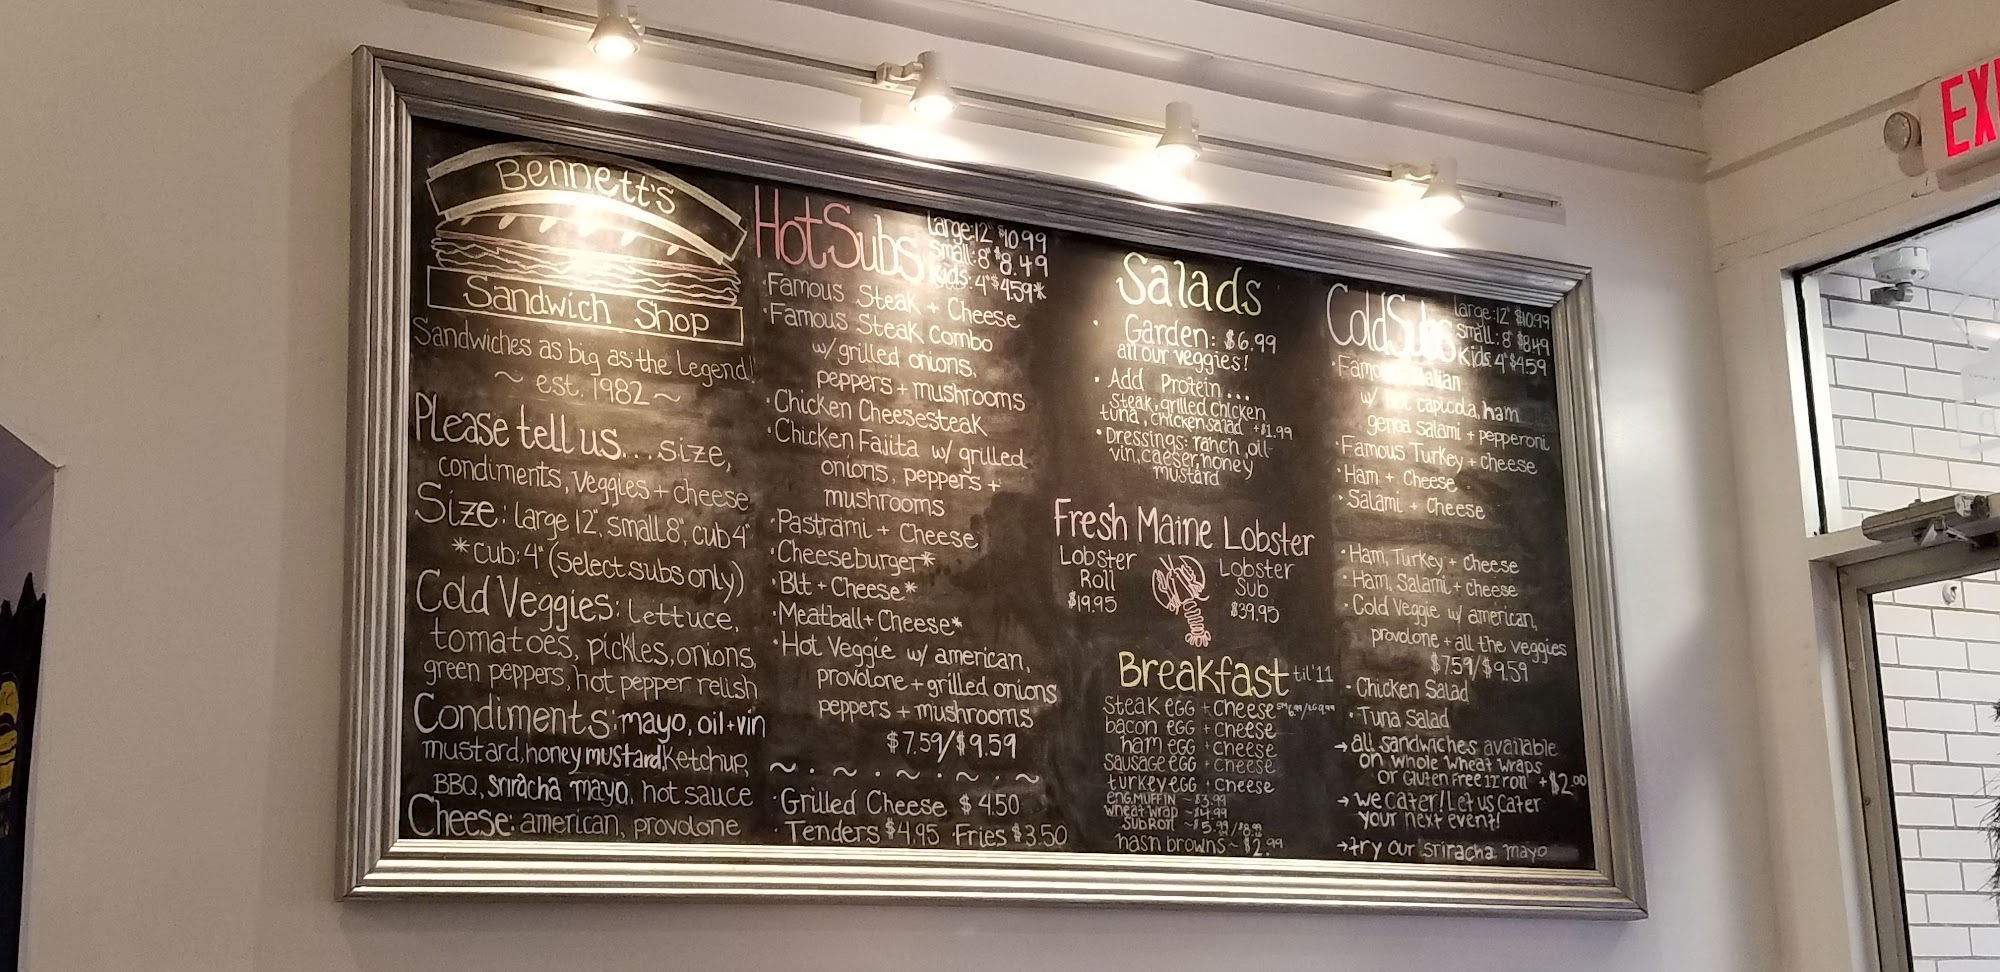 Bennett's
Sandwich Shop
Sandwiches as big as the Legend!
~ est. 1982 ~
Please tell us... size,
condiments, veggies + cheese
Size: large 12", small 8", cub 4"
*cub: 4" (select subs only)
Cold Veggies: lettuce,
tomatoes, pickles, onions,
green peppers, hot pepper relish
Condiments: mayo, oil+vin
mustard, honey mustard, ketchup,
BBQ, sriracha mayo, hot sauce
Cheese: american, provolone
Hot Subs
large: 12" $10.99
small: 8" $8.49
kids: 4" $4.59*
·Famous Steak + Cheese
·Famous Steak Combo
w/ grilled onions,
peppers + mushrooms
·Chicken Cheesesteak
·Chicken Fajita w/ grilled
onions, peppers +
mushrooms
·Pastrami + Cheese
·Cheeseburger*
·Blt + Cheese*
·Meatball + Cheese*
·Hot Veggie w/ american,
provolone + grilled onions
peppers + mushrooms
$7.59/$9.59
~ · ~ · ~ · ~ · ~
·Grilled Cheese $4.50
·Tenders $4.95 Fries $3.50
Salads
· Garden: $6.99
all our veggies!
· Add Protein...
steak, grilled chicken
tuna, chicken salad +$1.99
·Dressings: ranch, oil-
vin, caeser, honey
mustard
Fresh Maine Lobster
Lobster
Roll
$19.95
Lobster
Sub
$39.95
Breakfast til' 11
Steak egg + cheese
bacon egg + cheese
ham egg + cheese
sausage egg + cheese
turkey egg + cheese
eng. muffin ~ $3.99
wheat wrap ~ $4.99
sub roll ~ $5.99/$8.99
hash browns ~ $2.99
Cold Subs
large: 12" $10.99
small: 8" $8.49
kids 4" $4.59
·Famous Italian
w/ hot capicola, ham
genoa salami + pepperoni
·Famous Turkey + cheese
·Ham + Cheese
·Salami + Cheese
·Ham, Turkey + Cheese
·Ham, Salami + cheese
·Cold Veggie w/ american,
provolone + all the veggies
$7.59/$9.59
·Chicken Salad
·Tuna Salad
→ all sandwiches available
on whole wheat wraps
or Gluten Free roll +$2.00
→ we cater! Let us cater
your next event!
→ try our sriracha mayo
EXI